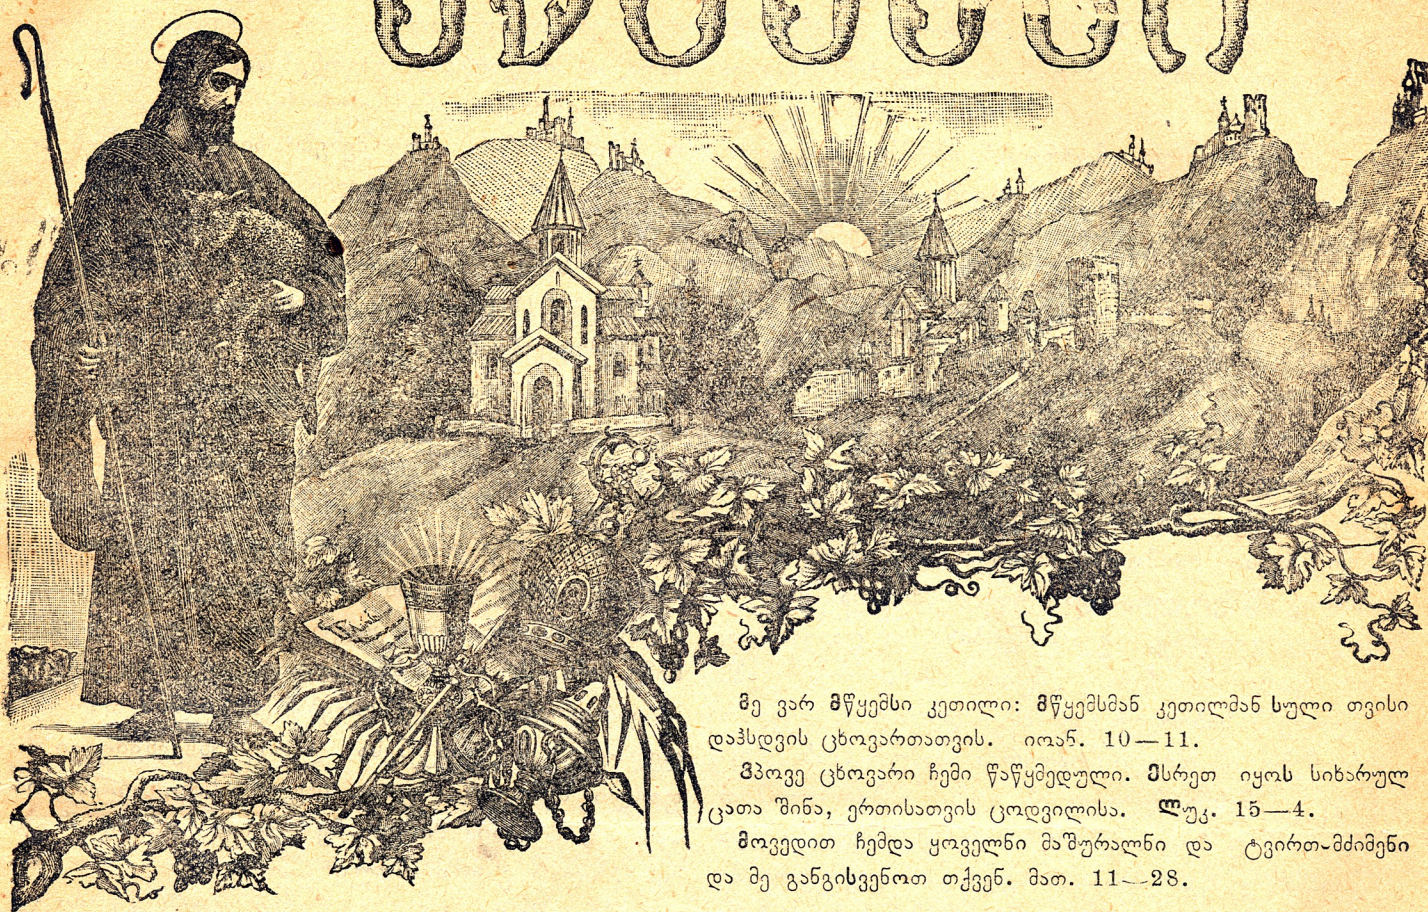 მე ვარ მწყემსი კეთილი: მწყემსმან კეთილმან სული თვისი
დაჰსდვის ცხოვართათვის. იოან. 10—11.
მპოვე ცხოვარი ჩემი წაწყმედული. ესრეთ იყოს სიხარულ
ცათა შინა, ერთისათვის ცოდვილისა. ლუკ. 15—4.
მოვედით ჩემდა ყოველნი მაშურალნი და ტვირთ-მძიმენი
და მე განგისვენოთ თქვენ. მათ. 11—28.